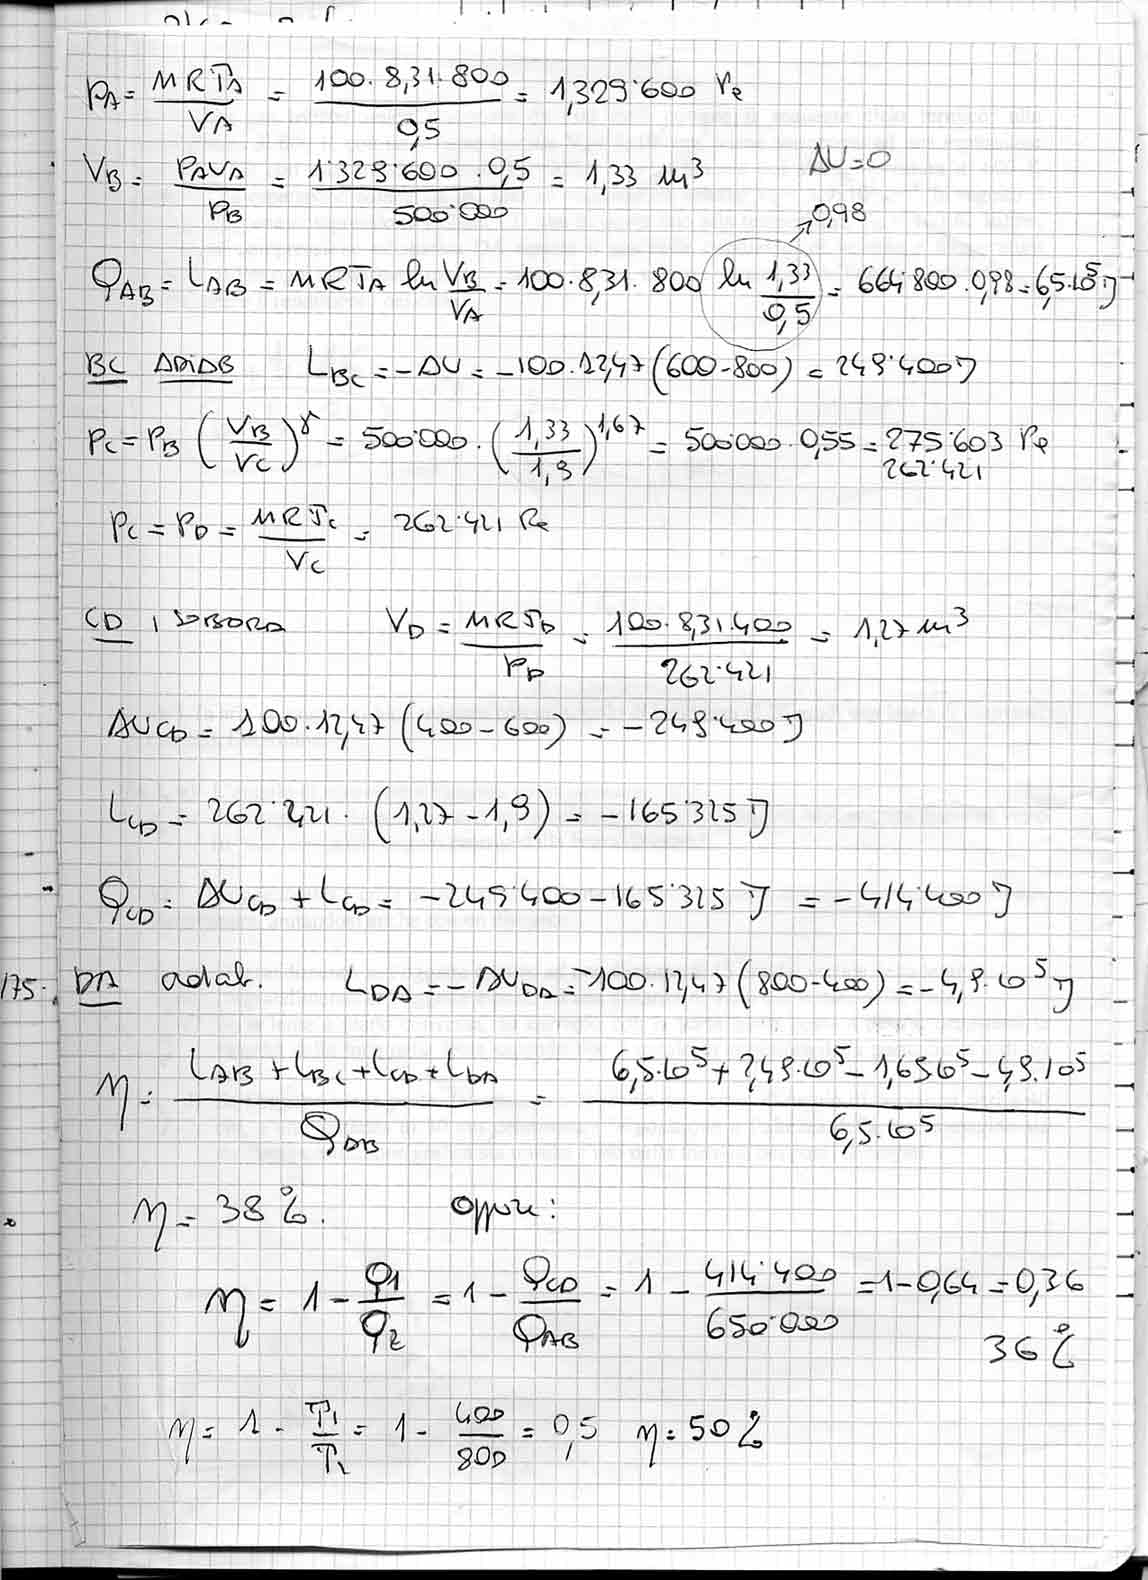 pA = nRTA/VA = 100·8,31·800/0,5 = 1,329·600 Pa
ΔU=0
VB = PAVA/PB = 1·329·600·0,5/500·000 = 1,33 m³
0,98
QAB = LAB = nRTA ln VB/VA = 100·8,31·800 ln 1,33/0,5 = 664·800·0,98 = 6,5·10⁵ J
BC ADIAB LBC = -ΔU = -100·12,47 (600-800) = 249·400 J
PC = PB (VB/VC)^γ = 500·000·(1,33/1,9)^1,67 = 500·000·0,55 = 275·603 Pa
262·421
PC = PD = nRTC/VC = 262·421 Pa
CD ISOBORA VD = nRTD/PD = 100·8,31·400/262·421 = 1,27 m³
ΔUCD = 100·12,47 (400-600) = -249·400 J
LCD = 262·421·(1,27-1,9) = -165·325 J
QCD = ΔUCD + LCD = -249·400 - 165·325 J = -414·400 J
175. DA adiab. LDA = -ΔUDA = -100·12,47 (800-400) = -4,9·10⁵ J
η = LAB+LBC+LCD+LDA/QAB = 6,5·10⁵ + 2,49·10⁵ - 1,65·10⁵ - 4,9·10⁵/6,5·10⁵
η = 38%. oppure:
η = 1 - Q1/Q2 = 1 - QCD/QAB = 1 - 414·400/650·000 = 1-0,64 = 0,36
36%
η = 1 - T1/T2 = 1 - 400/800 = 0,5 η = 50%